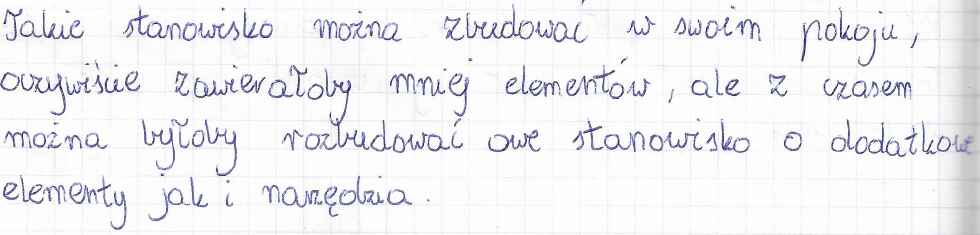 Takie stanowisko można zbudować w swoim pokoju,
oczywiście zawierałoby mniej elementów, ale z czasem
można byłoby rozbudować owe stanowisko o dodatkowe
elementy jak i narzędzia.